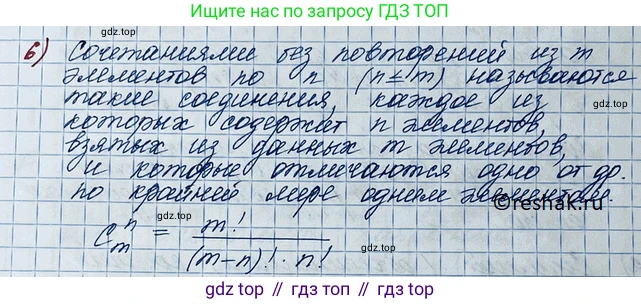 Ищите нас по запросу ГДЗ ТОП
gdz.top
6) Сочетаниями без повторений из m
элементов по n (n≤m) называются
такие соединения, каждое из
которых содержит n элементов,
взятых из данных m элементов,
и которые отличаются одно от др.
по крайней мере одним элементом.
©reshak.ru
C_m^n = m! / ((m-n)! · n!)
gdz.top // gdz.top // gdz.top